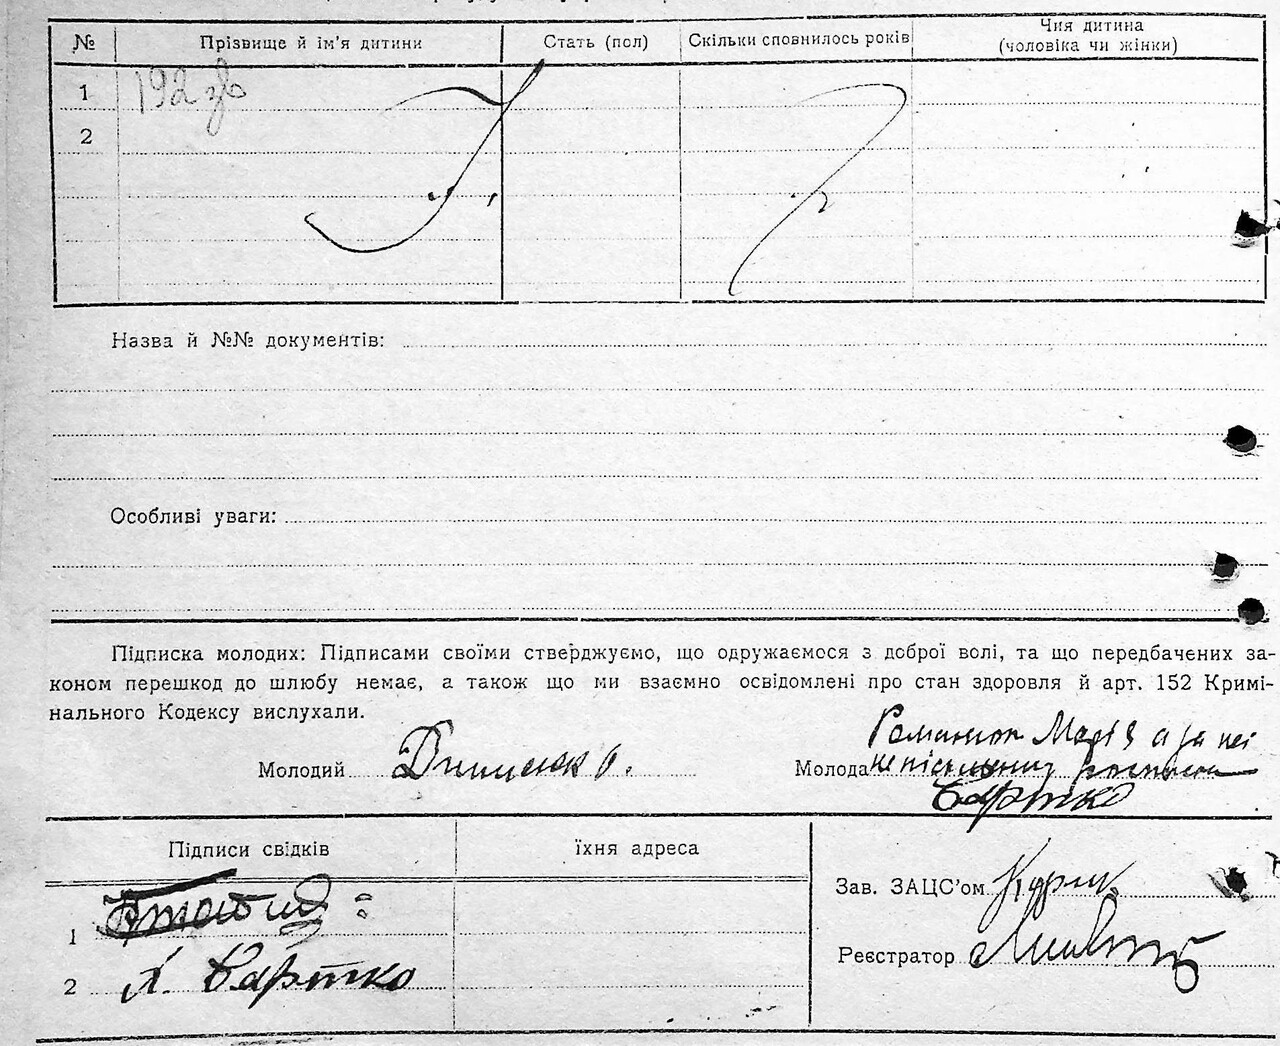 № Прізвище й ім'я дитини Стать (пол) Скільки сповнилось років Чия дитина
(чоловіка чи жінки)
1 192 зв
2
Назва й №№ документів:
Особливі уваги:
Підписка молодих: Підписами своїми стверджуємо, що одружаємося з доброї волі, та що передбачених за-
коном перешкод до шлюбу немає, а також що ми взаємно освідомлені про стан здоровля й арт. 152 Кримі-
нального Кодексу вислухали.
Романюк Марія а за неі
Молодий Молода неписьменну
Бартко
Підписи свідків їхня адреса
Зав. ЗАЦС'ом
1
Реєстратор
2 Бартко